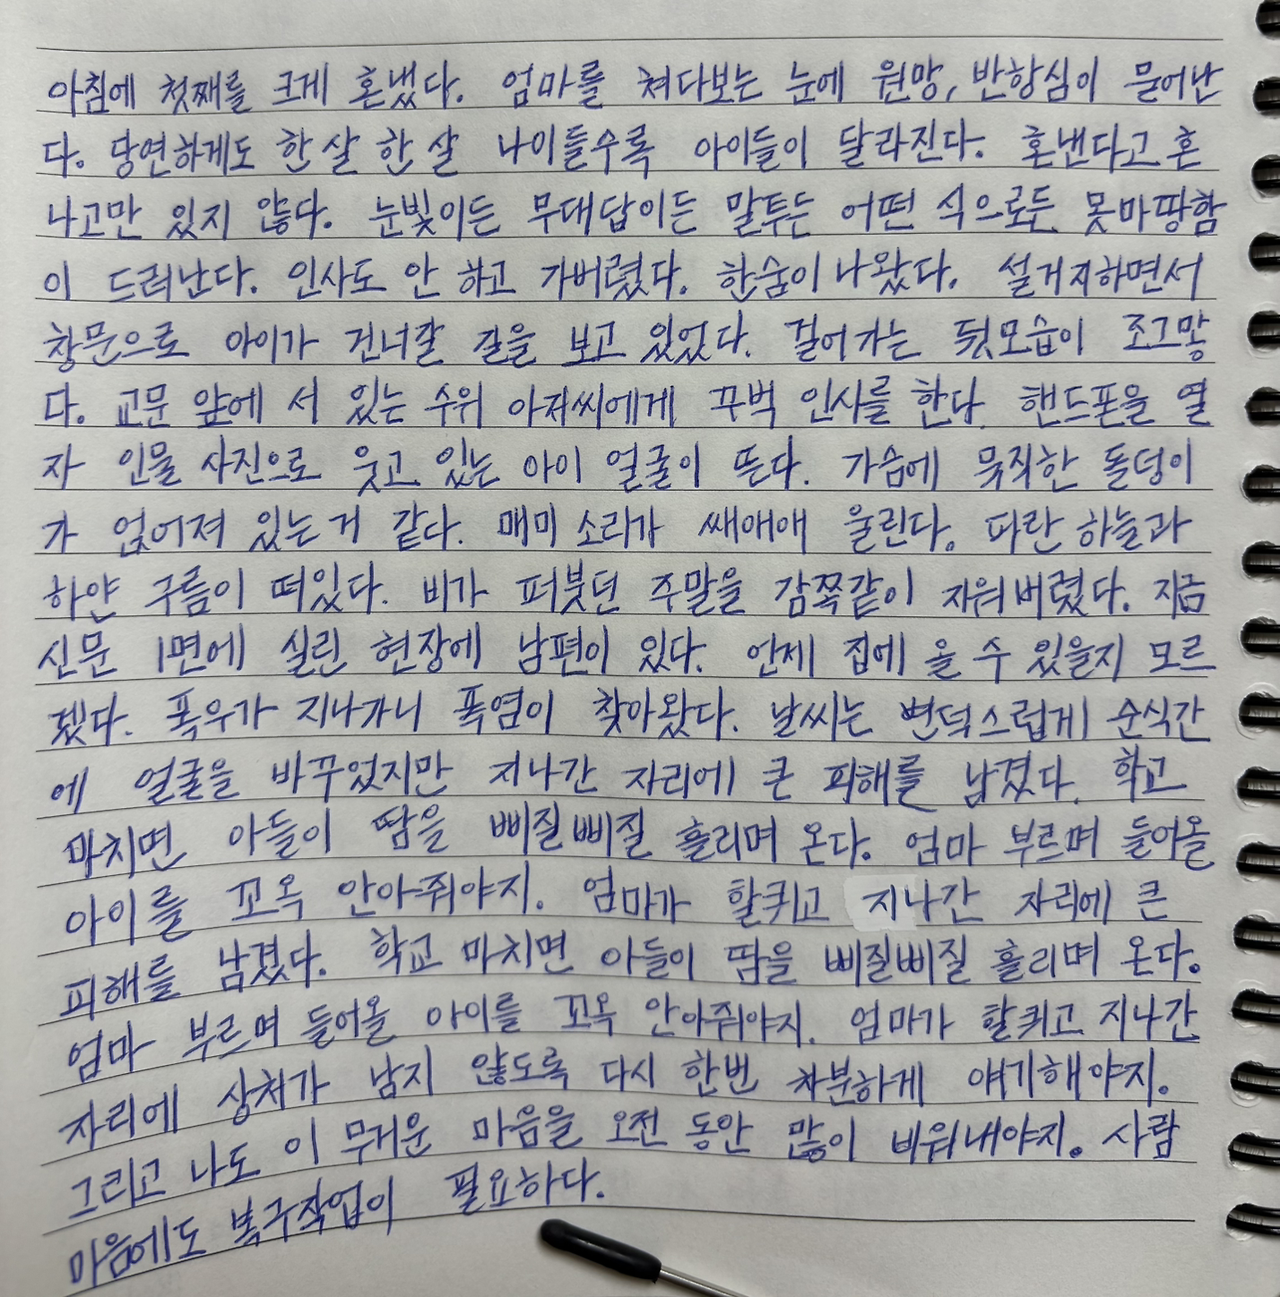 아침에 첫째를 크게 혼냈다. 엄마를 쳐다보는 눈에 원망, 반항심이 묻어난
다. 당연하게도 한 살 한 살 나이들수록 아이들이 달라진다. 혼낸다고 혼
나고만 있지 않다. 눈빛이든 무대답이든 말투든 어떤 식으로든 못마땅함
이 드러난다. 인사도 안 하고 가버렸다. 한숨이 나왔다. 설거지하면서
창문으로 아이가 건너갈 길을 보고 있었다. 걸어가는 뒷모습이 조그맣
다. 교문 앞에 서 있는 수위 아저씨에게 꾸벅 인사를 한다. 핸드폰을 열
자 인물 사진으로 웃고 있는 아이 얼굴이 뜬다. 가슴에 묵직한 돌덩이
가 얹어져 있는거 같다. 매미 소리가 쌔애애 울린다. 파란 하늘과
하얀 구름이 떠있다. 비가 퍼붓던 주말을 감쪽같이 지워버렸다. 지금
신문 1면에 실린 현장에 남편이 있다. 언제 집에 올 수 있을지 모르
겠다. 폭우가 지나가니 폭염이 찾아왔다. 날씨는 변덕스럽게 순식간
에 얼굴을 바꾸었지만 지나간 자리에 큰 피해를 남겼다. 학교
마치면 아들이 땀을 삐질삐질 흘리며 온다. 엄마 부르며 들어올
아이를 꼬옥 안아줘야지. 엄마가 할퀴고 지나간 자리에 큰
피해를 남겼다. 학교 마치면 아들이 땀을 삐질삐질 흘리며 온다.
엄마 부르며 들어올 아이를 꼬옥 안아줘야지. 엄마가 할퀴고 지나간
자리에 상처가 남지 않도록 다시 한번 차분하게 얘기해야지.
그리고 나도 이 무거운 마음을 오전 동안 많이 비워내야지. 사람
마음에도 복구작업이 필요하다.